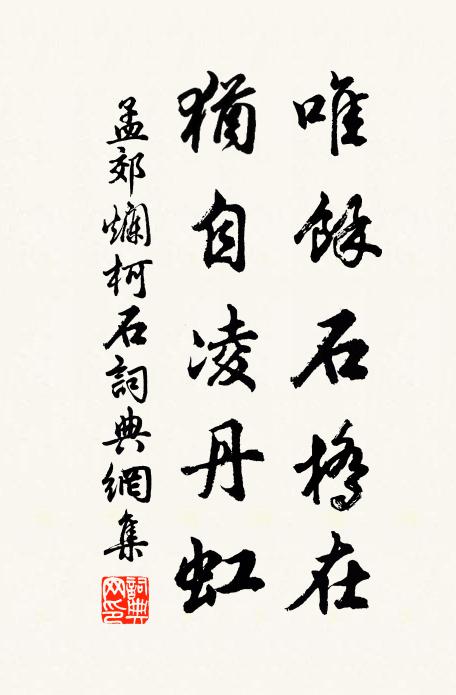 唯餘石橋在
猶自凌丹虹
孟郊爛柯石詞典網集
詞典
网印